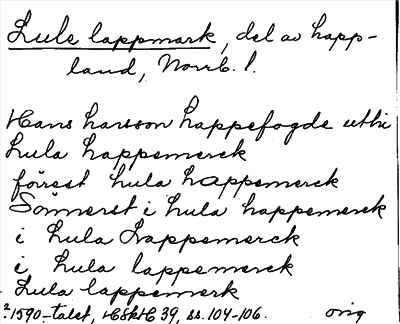 Lule lappmark, del av Lapp-
land, Norrb. l.
Hans Larsson Lappefogde uthi
Lula Lappemerck
föřest Lula Lappemerck
Sommerst i Lula Lappemerck
i Lula Lappemerck
i Lula lappemerck
Lula lappemerk
1590-talet, HSkH 39, ss. 104-106. orig